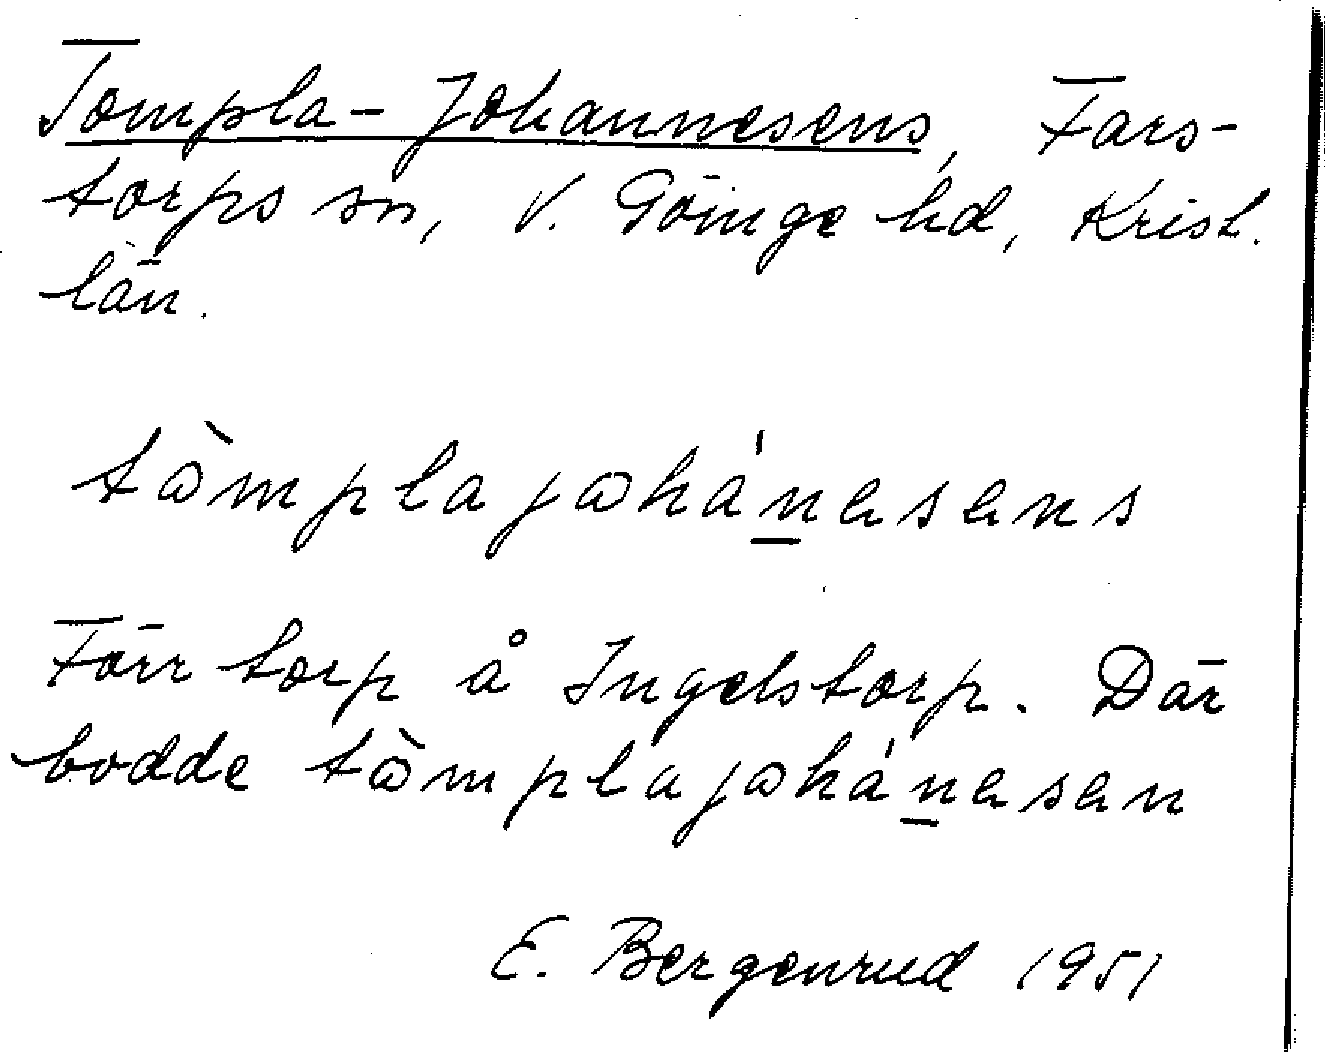 Tompla-Johannesens, Fars-
torps sn, V. Göinge hd, Krist.
län.
tꞷ̀mplajꞷhánasens
Förr torp å Ingelstorp. Där
bodde tꞷ̀mplajꞷhánasen
E. Bergenrud 1951